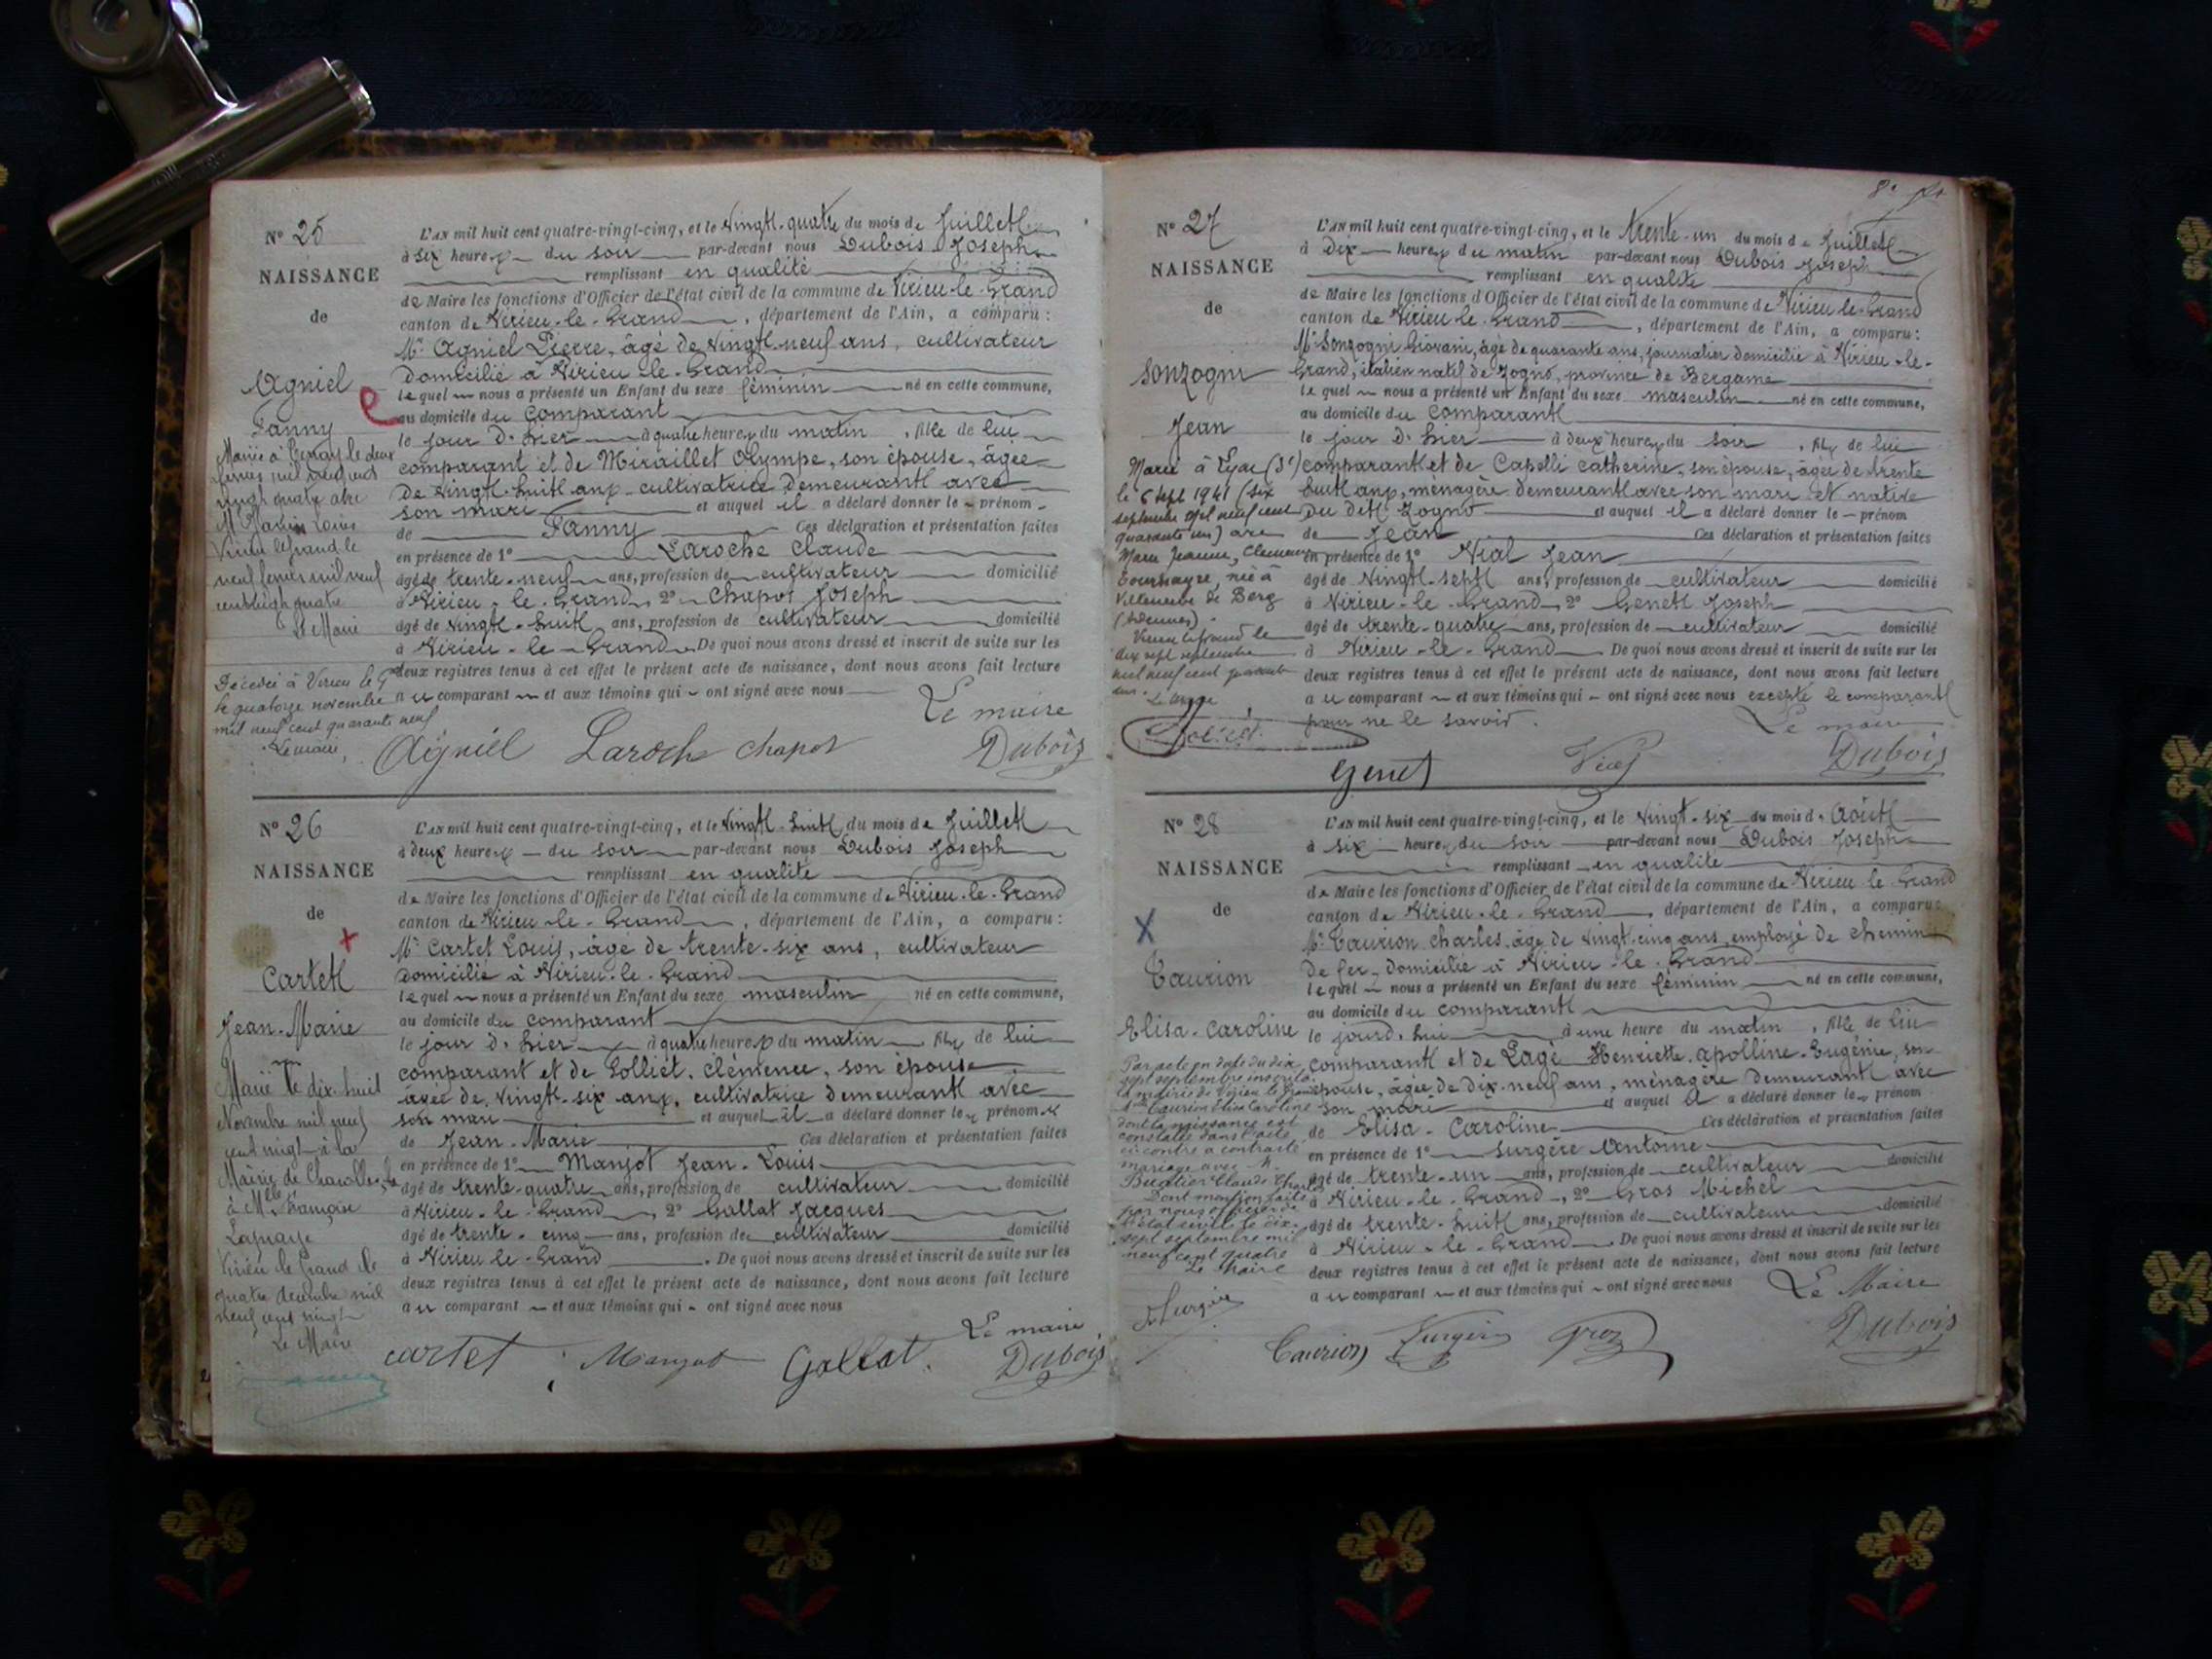 N° 25
NAISSANCE
de
Agniel
Fanny
Mariée à
mil neuf cent
vingt quatre avec
M. Louis
Virieu le Grand le
neuf février mil neuf
cent vingt quatre
Le Maire
Décédée à Virieu le G
le quatorze novembre
mil neuf cent quarante neuf
Le maire,
L'AN mil huit cent quatre-vingt-cinq, et le vingt-quatre du mois de Juillet
à six heures du soir par-devant nous Dubois Joseph
remplissant en qualité
de Maire les fonctions d'Officier de l'état civil de la commune de Virieu-le-Grand
canton de Virieu-le-Grand, département de l'Ain, a comparu:
Mr Agniel Pierre, âgé de vingt-neuf ans, cultivateur
domicilié à Virieu-le-Grand
lequel nous a présenté un Enfant du sexe féminin né en cette commune,
au domicile du comparant
le jour d'hier à quatre heures du matin, fille de lui
comparant et de Miraillet Olympe, son épouse, âgée
de vingt-huit ans cultivatrice demeurant avec
son mari et auquel il a déclaré donner le prénom
de Fanny Ces déclaration et présentation faites
en présence de 1° Laroche Claude
âgé de trente-neuf ans, profession de cultivateur domicilié
à Virieu-le-Grand, 2° Chapot Joseph
âgé de vingt-huit ans, profession de cultivateur domicilié
à Virieu-le-Grand De quoi nous avons dressé et inscrit de suite sur les
deux registres tenus à cet effet le présent acte de naissance, dont nous avons fait lecture
au comparant et aux témoins qui ont signé avec nous
Le maire
Agniel Laroche Chapot Dubois
N° 26
NAISSANCE
de
Cartet
Jean-Marie
Marié le dix-huit
Novembre mil neuf
cent vingt à la
Mairie de
à Mlle Françoise
Virieu le Grand le
quatre décembre mil
neuf cent vingt
Le Maire
L'AN mil huit cent quatre-vingt-cinq, et le vingt-huit du mois de Juillet
à deux heures du soir par-devant nous Dubois Joseph
remplissant en qualité
de Maire les fonctions d'Officier de l'état civil de la commune de Virieu-le-Grand
canton de Virieu-le-Grand, département de l'Ain, a comparu:
Mr Cartet Louis, âgé de trente-six ans, cultivateur
domicilié à Virieu-le-Grand
lequel nous a présenté un Enfant du sexe masculin né en cette commune,
au domicile du comparant
le jour d'hier à quatre heures du matin fils de lui
comparant et de Lolliet, Clémence, son épouse
âgée de vingt-six ans, cultivatrice demeurant avec
son mari et auquel il a déclaré donner les prénoms
de Jean-Marie Ces déclaration et présentation faites
en présence de 1° Manjot Jean-Louis
âgé de trente-quatre ans, profession de cultivateur domicilié
à Virieu-le-Grand, 2° Gallat Jacques
âgé de trente-cinq ans, profession de cultivateur domicilié
à Virieu-le-Grand. De quoi nous avons dressé et inscrit de suite sur les
deux registres tenus à cet effet le présent acte de naissance, dont nous avons fait lecture
au comparant et aux témoins qui ont signé avec nous
Le maire,
cartet Manjot Gallat. Dubois
N° 27
NAISSANCE
de
Sonzogni
Jean
Marié à
le 6 Sept 1941 (six
septembre mil neuf cent
quarante un) avec
Marie Jeanne, Clémence
née à
Villeneuve de Berg
Virieu le Grand le
dix sept septembre
mil neuf cent quarante
un.
L'AN mil huit cent quatre-vingt-cinq, et le trente-un du mois de Juillet
à dix heures du matin par-devant nous Dubois Joseph
remplissant en qualité
de Maire les fonctions d'Officier de l'état civil de la commune de Virieu-le-Grand
canton de Virieu-le-Grand, département de l'Ain, a comparu:
Mr Sonzogni Giovani, âgé de quarante ans, journalier domicilié à Virieu-le-
Grand, italien natif de Zogno, province de Bergame
lequel nous a présenté un Enfant du sexe masculin né en cette commune,
au domicile du comparant
le jour d'hier à deux heures du soir, fils de lui
comparant et de Capelli Catherine, son épouse, âgée de trente
huit ans, ménagère demeurant avec son mari et native
du dit Zogno et auquel il a déclaré donner le prénom
de Jean Ces déclaration et présentation faites
en présence de 1° Vial Jean
âgé de vingt-sept ans, profession de cultivateur domicilié
à Virieu-le-Grand, 2° Genet Joseph
âgé de trente-quatre ans, profession de cultivateur domicilié
à Virieu-le-Grand. De quoi nous avons dressé et inscrit de suite sur les
deux registres tenus à cet effet le présent acte de naissance, dont nous avons fait lecture
au comparant et aux témoins qui ont signé avec nous excepté le comparant
pour ne le savoir. Le maire
Genet Vial Dubois
N° 28
NAISSANCE
de
X
Taurion
Elisa-Caroline
Par acte en date du dix
sept septembre inscrit à
la mairie de Virieu le Grand
Taurion Elisa Caroline
dont la naissance est
constatée dans l'acte
ci-contre a contracté
mariage avec M.
Claude Charles
Dont mention faite
par nous officier de
l'état civil le dix-
sept septembre mil
neuf cent quatre
Le Maire
L'AN mil huit cent quatre-vingt-cinq, et le vingt-six du mois d'Août
à six heures du soir par-devant nous Dubois Joseph
remplissant en qualité
de Maire les fonctions d'Officier de l'état civil de la commune de Virieu-le-Grand
canton de Virieu-le-Grand, département de l'Ain, a comparu:
Mr Taurion Charles, âgé de vingt-cinq ans, employé de chemin
de fer, domicilié à Virieu-le-Grand
lequel nous a présenté un Enfant du sexe féminin né en cette commune,
au domicile du comparant
le jourd'hui à une heure du matin, fille de lui
comparant et de Lagé Henriette-Apolline-Eugénie, son
épouse, âgée de dix-neuf ans, ménagère demeurant avec
son mari et auquel il a déclaré donner les prénom
de Elisa-Caroline Ces déclaration et présentation faites
en présence de 1° Surgère Antoine
âgé de trente-un ans, profession de cultivateur domicilié
à Virieu-le-Grand, 2° Gros Michel
âgé de trente-huit ans, profession de cultivateur domicilié
à Virieu-le-Grand. De quoi nous avons dressé et inscrit de suite sur les
deux registres tenus à cet effet le présent acte de naissance, dont nous avons fait lecture
au comparant et aux témoins qui ont signé avec nous Le Maire
Taurion Surgère Gros Dubois